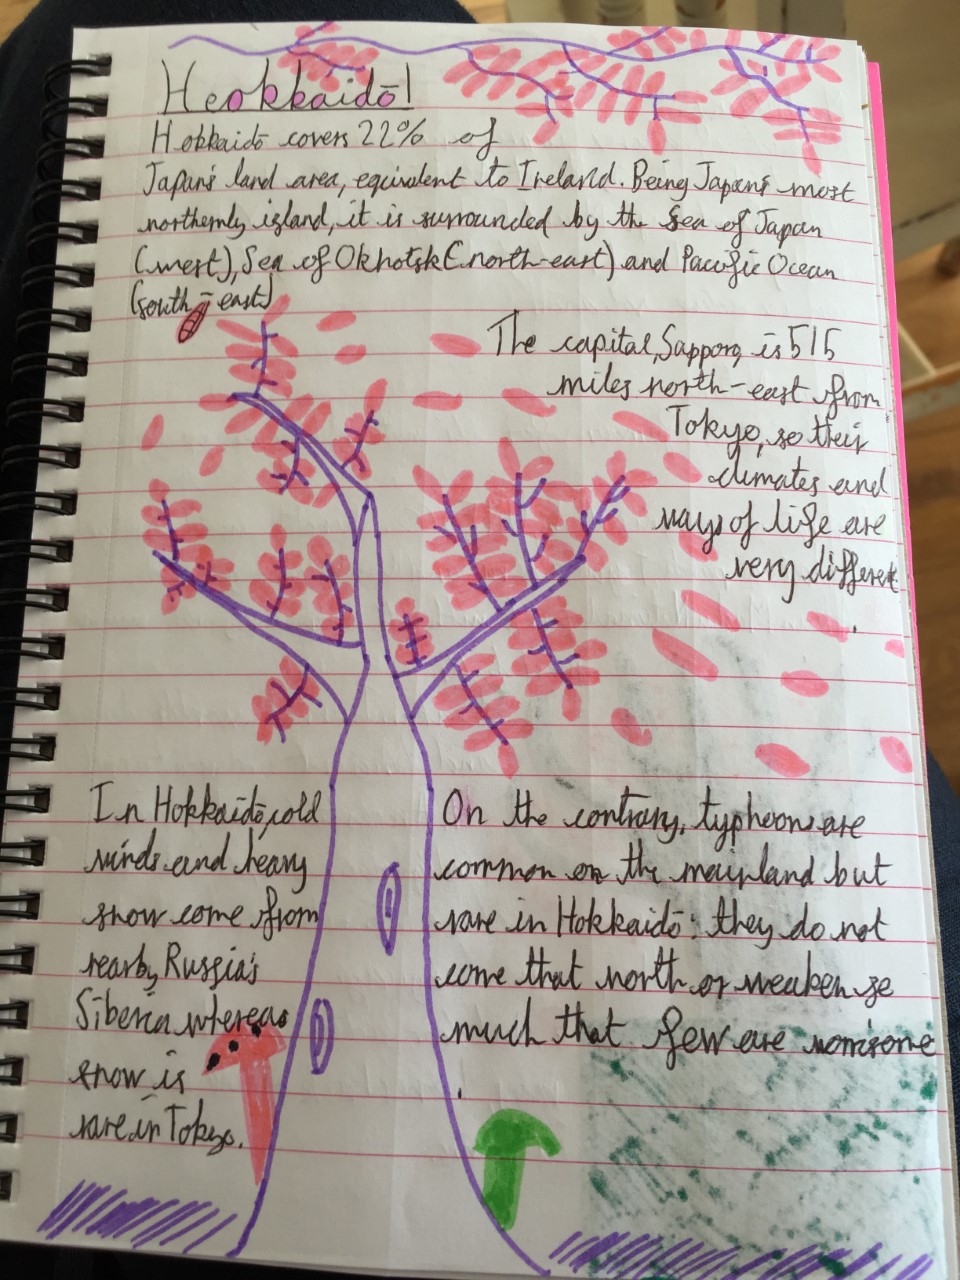 Hokkaidō!
Hokkaidō covers 22% of
Japan's land area, equivalent to Ireland. Being Japan's most
northernly island, it is surrounded by the Sea of Japan
(west), Sea of Okhotsk (north-east) and Pacific Ocean
(south-east)
The capital, Sapporo, is 515
miles north-east from
Tokyo, so their
climates and
ways of life are
very different
.
In Hokkaidō, cold
winds and heavy
snow come from
nearby Russia's
Siberia whereas
snow is
rare in Tokyo.
On the contrary, typhoons are
common on the mainland but
rare in Hokkaidō: they do not
come that north or weaken so
much that few are
.